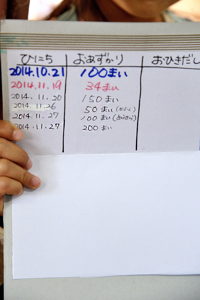 ひにち おあずかり お・ひきだし
2014.10.21 100まい
2014.11.19 34まい
2014.11.20 150まい
2014.11.26 50まい
2014.11.27 100まい
2014.11.27 200まい